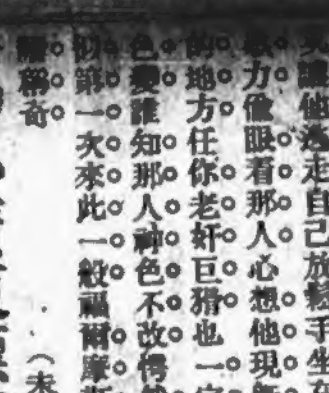 他逃走自己放鬆手坐在
力儆眼看那人心想他現
的地方任你老奸巨猾也一
色變誰知那人神色不改愕
似第一次來此一般福爾摩
稱奇 （未